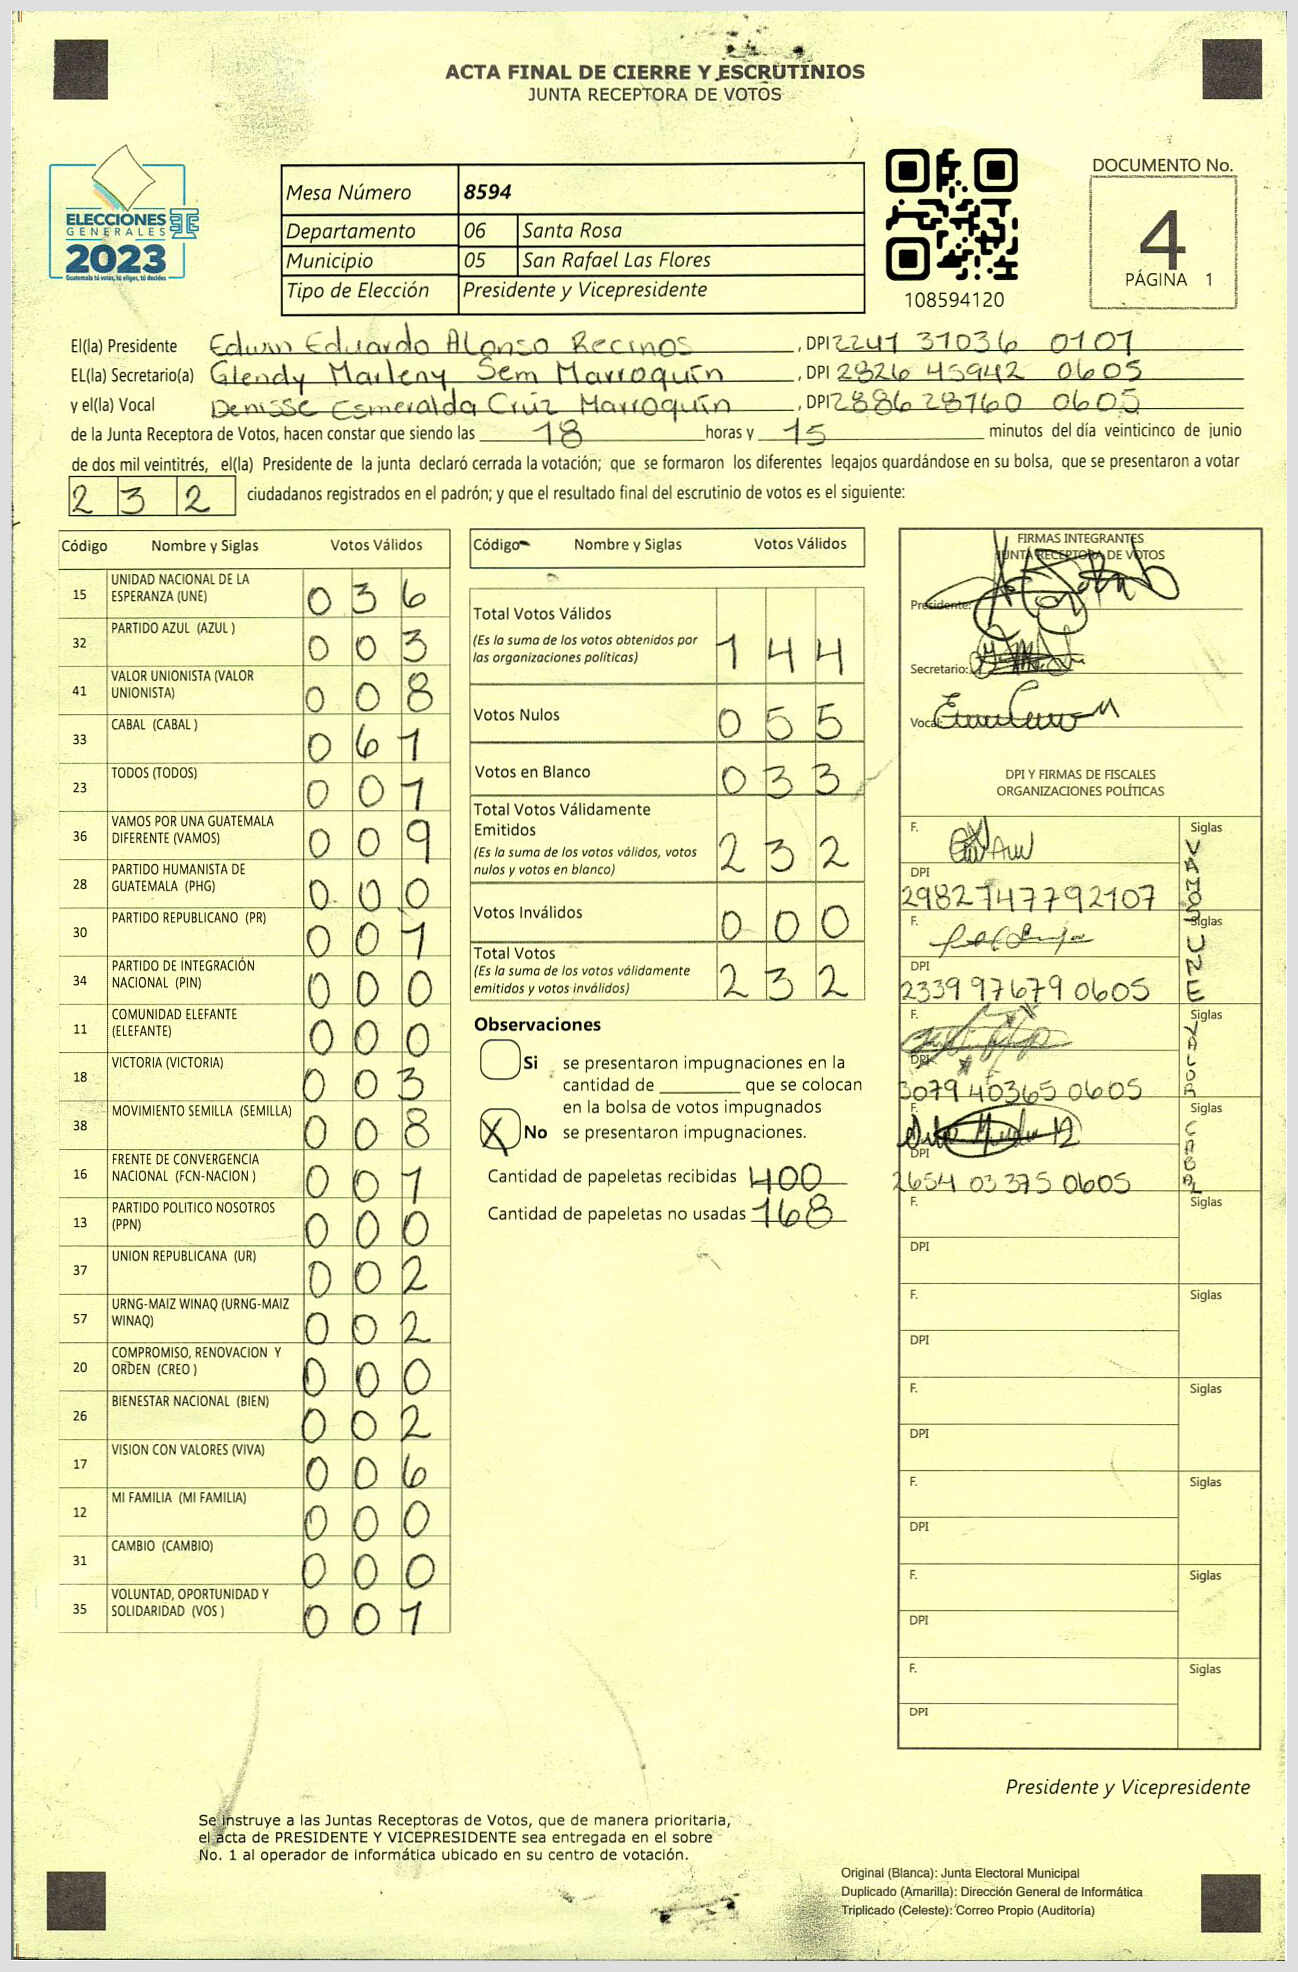 ACTA FINAL DE CIERRE Y ESCRUTINIOS
JUNTA RECEPTORA DE VOTOS
ELECCIONES
GENERALES
2023
Guatemala tú votas, tú eliges, tú decides
Mesa Número 8594
Departamento 06 Santa Rosa
Municipio 05 San Rafael Las Flores
Tipo de Elección Presidente y Vicepresidente
108594120
DOCUMENTO No.
4
PÁGINA 1
El(la) Presidente Edwin Eduardo Alonso Recinos, DPI 2247 37036 0101
EL(la) Secretario(a) Glendy Marleny Sem Marroquín, DPI 2826 45942 0605
y el(la) Vocal Denisse Esmeralda Cruz Marroquín, DPI 2886 28760 0605
de la Junta Receptora de Votos, hacen constar que siendo las 18 horas y 15 minutos del día veinticinco de junio
de dos mil veintitrés, el(la) Presidente de la junta declaró cerrada la votación; que se formaron los diferentes legajos guardándose en su bolsa, que se presentaron a votar
232 ciudadanos registrados en el padrón; y que el resultado final del escrutinio de votos es el siguiente:
Código Nombre y Siglas Votos Válidos
15 UNIDAD NACIONAL DE LA ESPERANZA (UNE) 036
32 PARTIDO AZUL (AZUL ) 003
41 VALOR UNIONISTA (VALOR UNIONISTA) 008
33 CABAL (CABAL ) 061
23 TODOS (TODOS) 001
36 VAMOS POR UNA GUATEMALA DIFERENTE (VAMOS) 009
28 PARTIDO HUMANISTA DE GUATEMALA (PHG) 000
30 PARTIDO REPUBLICANO (PR) 001
34 PARTIDO DE INTEGRACIÓN NACIONAL (PIN) 000
11 COMUNIDAD ELEFANTE (ELEFANTE) 000
18 VICTORIA (VICTORIA) 003
38 MOVIMIENTO SEMILLA (SEMILLA) 008
16 FRENTE DE CONVERGENCIA NACIONAL (FCN-NACION ) 001
13 PARTIDO POLITICO NOSOTROS (PPN) 000
37 UNION REPUBLICANA (UR) 002
57 URNG-MAIZ WINAQ (URNG-MAIZ WINAQ) 002
20 COMPROMISO, RENOVACION Y ORDEN (CREO ) 000
26 BIENESTAR NACIONAL (BIEN) 002
17 VISION CON VALORES (VIVA) 006
12 MI FAMILIA (MI FAMILIA) 000
31 CAMBIO (CAMBIO) 000
35 VOLUNTAD, OPORTUNIDAD Y SOLIDARIDAD (VOS ) 001
Código Nombre y Siglas Votos Válidos
Total Votos Válidos 144
(Es la suma de los votos obtenidos por
las organizaciones políticas)
Votos Nulos 055
Votos en Blanco 033
Total Votos Válidamente
Emitidos 232
(Es la suma de los votos válidos, votos
nulos y votos en blanco)
Votos Inválidos 000
Total Votos 232
(Es la suma de los votos válidamente
emitidos y votos inválidos)
Observaciones
Si se presentaron impugnaciones en la
cantidad de ________ que se colocan
en la bolsa de votos impugnados
X No se presentaron impugnaciones.
Cantidad de papeletas recibidas 400
Cantidad de papeletas no usadas 168
FIRMAS INTEGRANTES
JUNTA RECEPTORA DE VOTOS
Presidente:
Secretario:
Vocal:
DPI Y FIRMAS DE FISCALES
ORGANIZACIONES POLÍTICAS
F. Siglas VAMOS
DPI 2982747792107
F. Siglas UNE
DPI 2339 97679 0605
F. Siglas VALOR
DPI 3079 40365 0605
F. Siglas CABAL
DPI 2654 03 375 0605
F. Siglas
DPI
F. Siglas
DPI
F. Siglas
DPI
F. Siglas
DPI
F. Siglas
DPI
F. Siglas
DPI
Presidente y Vicepresidente
Se instruye a las Juntas Receptoras de Votos, que de manera prioritaria,
el acta de PRESIDENTE Y VICEPRESIDENTE sea entregada en el sobre
No. 1 al operador de informática ubicado en su centro de votación.
Original (Blanca): Junta Electoral Municipal
Duplicado (Amarilla): Dirección General de Informática
Triplicado (Celeste): Correo Propio (Auditoría)